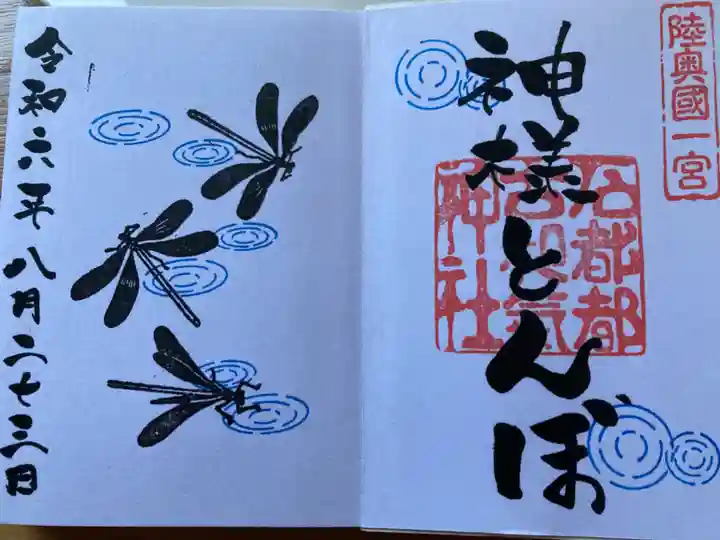 陸奥國一宮
神様とんぼ
石都都
古和氣
神社
令和六年八月二十三日